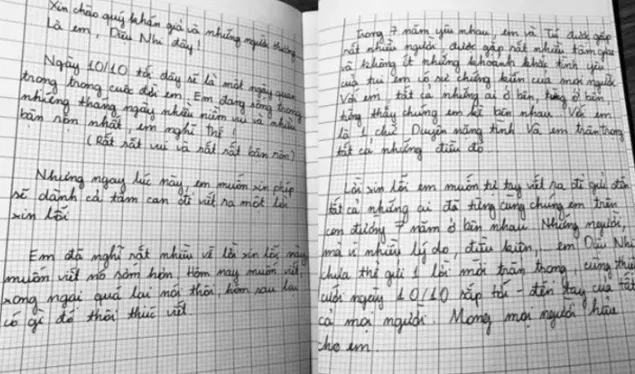 Xin chào quý khán giả và những người thương
Là em, Diệu Nhi đây!
Ngày 10/10 tới đây sẽ là một ngày quan
trọng trong cuộc đời em. Em đang sống trong
những tháng ngày nhiều niềm vui và nhiều
bận rộn nhất, em nghĩ thế!
(Rất rất vui và rất rất bận rộn)
Nhưng ngay lúc này, em muốn xin phép
sẽ dành cả tâm can để viết ra một lời
xin lỗi
Em đã nghĩ rất nhiều về lời xin lỗi này
muốn viết nó sớm hơn. Hôm nay muốn viết,
xong ngại quá lại nói thôi, hôm sau lại
có gì đó thôi thúc viết.
Trong 7 năm yêu nhau, em và Tú được gặp
rất nhiều người, được gặp rất nhiều tâm giao
và không ít những khoảnh khắc tình yêu
của tụi em có sự chứng kiến của mọi người
Với em, tất cả những ai ở bên, từng ở bên,
từng thấy chúng em kề bên nhau. Với em
là 1 chữ Duyên nặng tình. Và em trân trọng
tất cả những điều đó
Lời xin lỗi em muốn từ tay viết ra để gửi đến
tất cả những ai đã từng cùng chúng em trên
con đường 7 năm ở bên nhau. Những người,
mà vì nhiều lý do, điều kiện, em Diệu Nhi
chưa thể gửi 1 lời mời trân trọng, cùng thiệp
cưới ngày 10/10 sắp tới - đến tay của tất
cả mọi người. Mong mọi người hiểu
cho em.